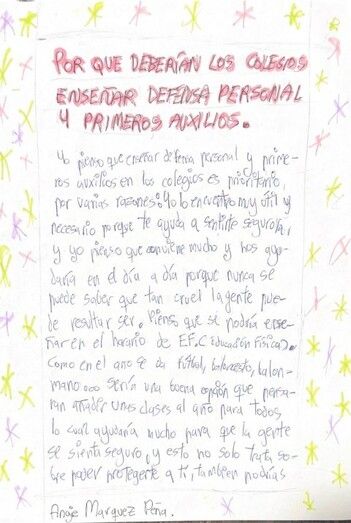 POR QUE DEBERÍAN LOS COLEGIOS
ENSEÑAR DEFENSA PERSONAL
Y PRIMEROS AUXILIOS.
Yo pienso que enseñar defensa personal y prime-
ros auxilios en los colegios es prioritario,
por varias razones: Yo lo encuentro muy útil y
necesario porque te ayuda a sentirte seguro/a,
y yo pienso que conviene mucho y nos ayu-
daría en el día a día porque nunca se
puede saber que tan cruel la gente pue-
de resultar ser. Pienso que se podría ense-
ñar en el horario de E.F.(Educación Física).
Como en el año se da fútbol, baloncesto, balon-
mano... sería una buena opción que pensa-
ran añadir unas clases al año para todos
lo cual ayudaría mucho para que la gente
se sienta seguro, y esto no solo trata so-
bre poder protegerte a ti, tambien podrías
Angie Marquez Peña.